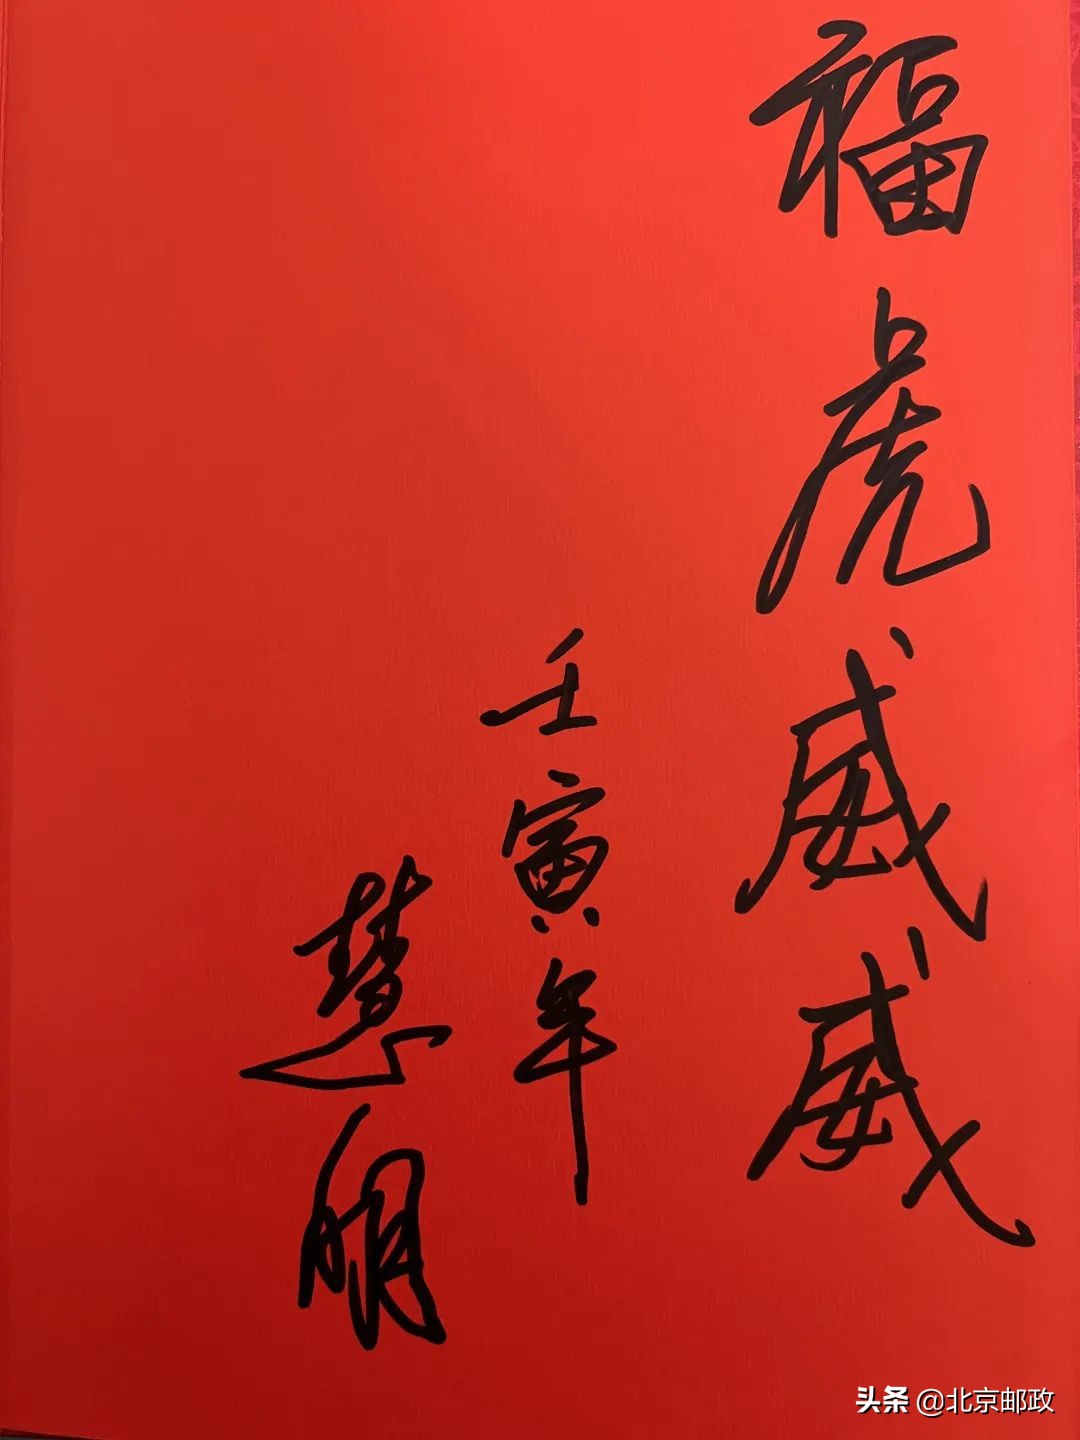 福虎威威
壬寅年
慧明
头条 @北京邮政